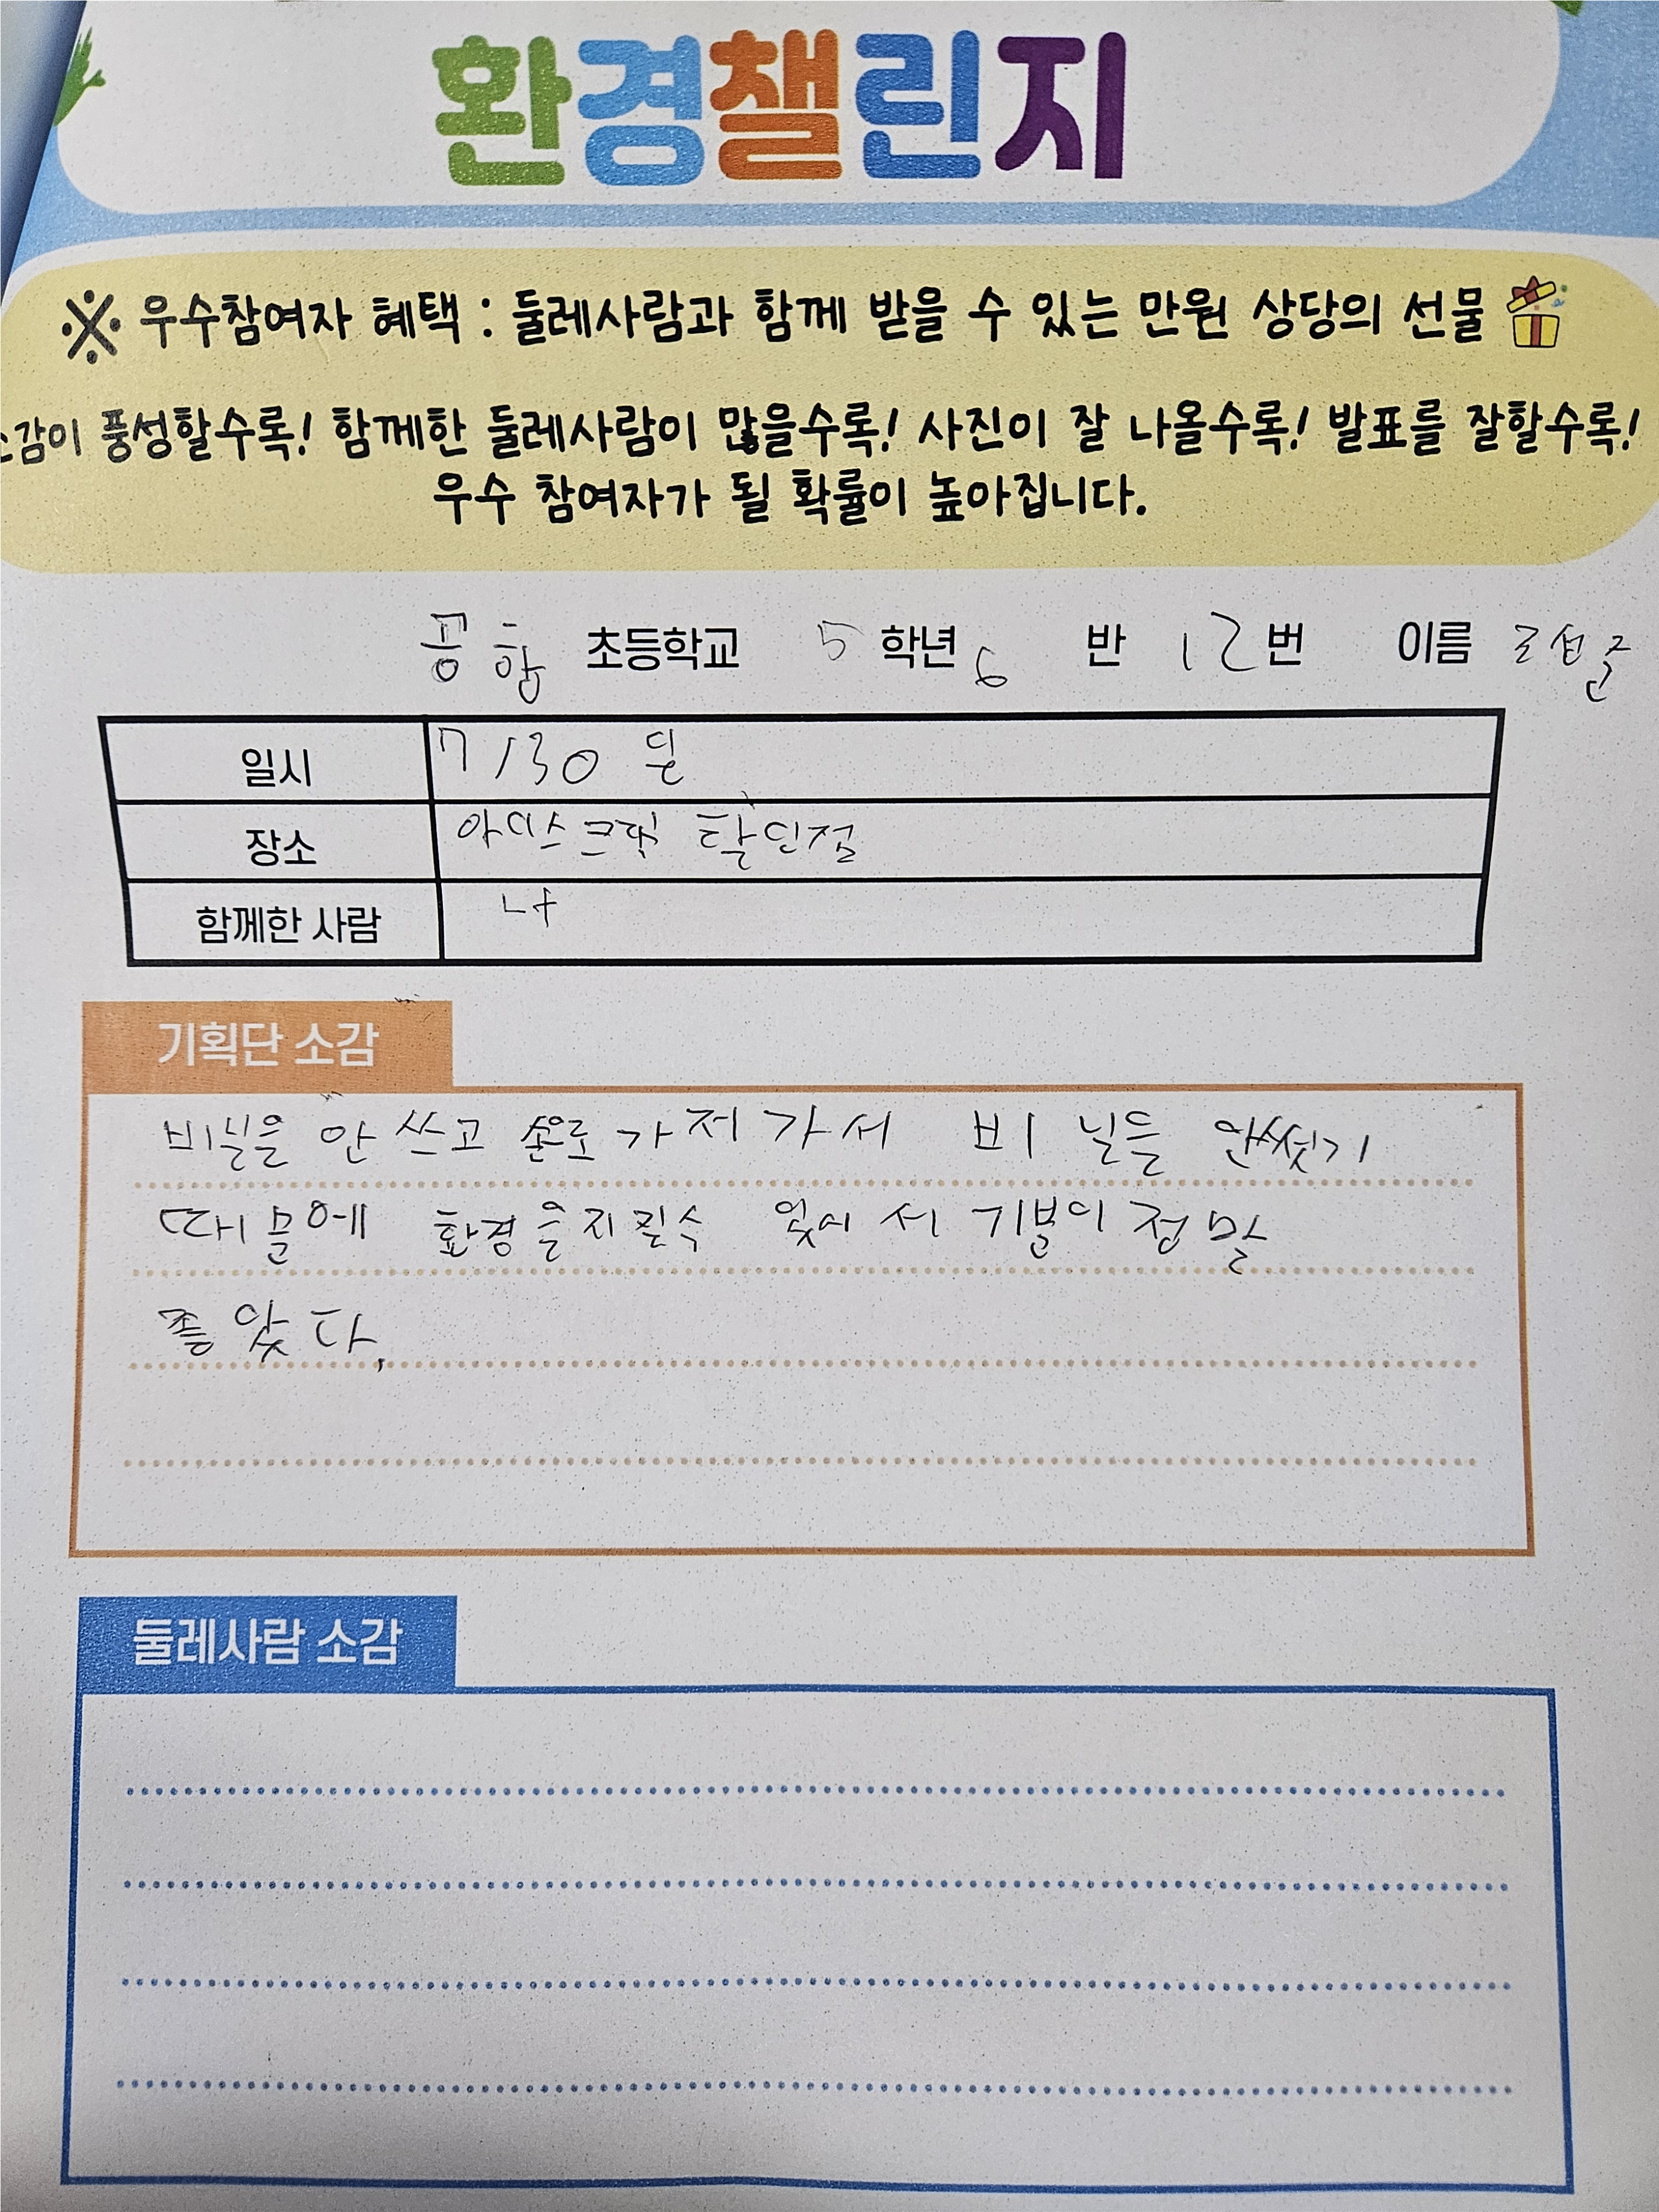 환경챌린지
※ 우수참여자 혜택 : 둘레사람과 함께 받을 수 있는 만원 상당의 선물
소감이 풍성할수록! 함께한 둘레사람이 많을수록! 사진이 잘 나올수록! 발표를 잘할수록!
우수 참여자가 될 확률이 높아집니다.
공항 초등학교 5 학년 6 반 12번 이름
일시 7/30
장소 아이스크림 할인점
함께한 사람 나
기획단 소감
비닐을 안 쓰고 손으로 가저가서 비닐를 안썼기
때믄에 환경을지킬수 잊어서 기분이 정말
좋았다.
둘레사람 소감